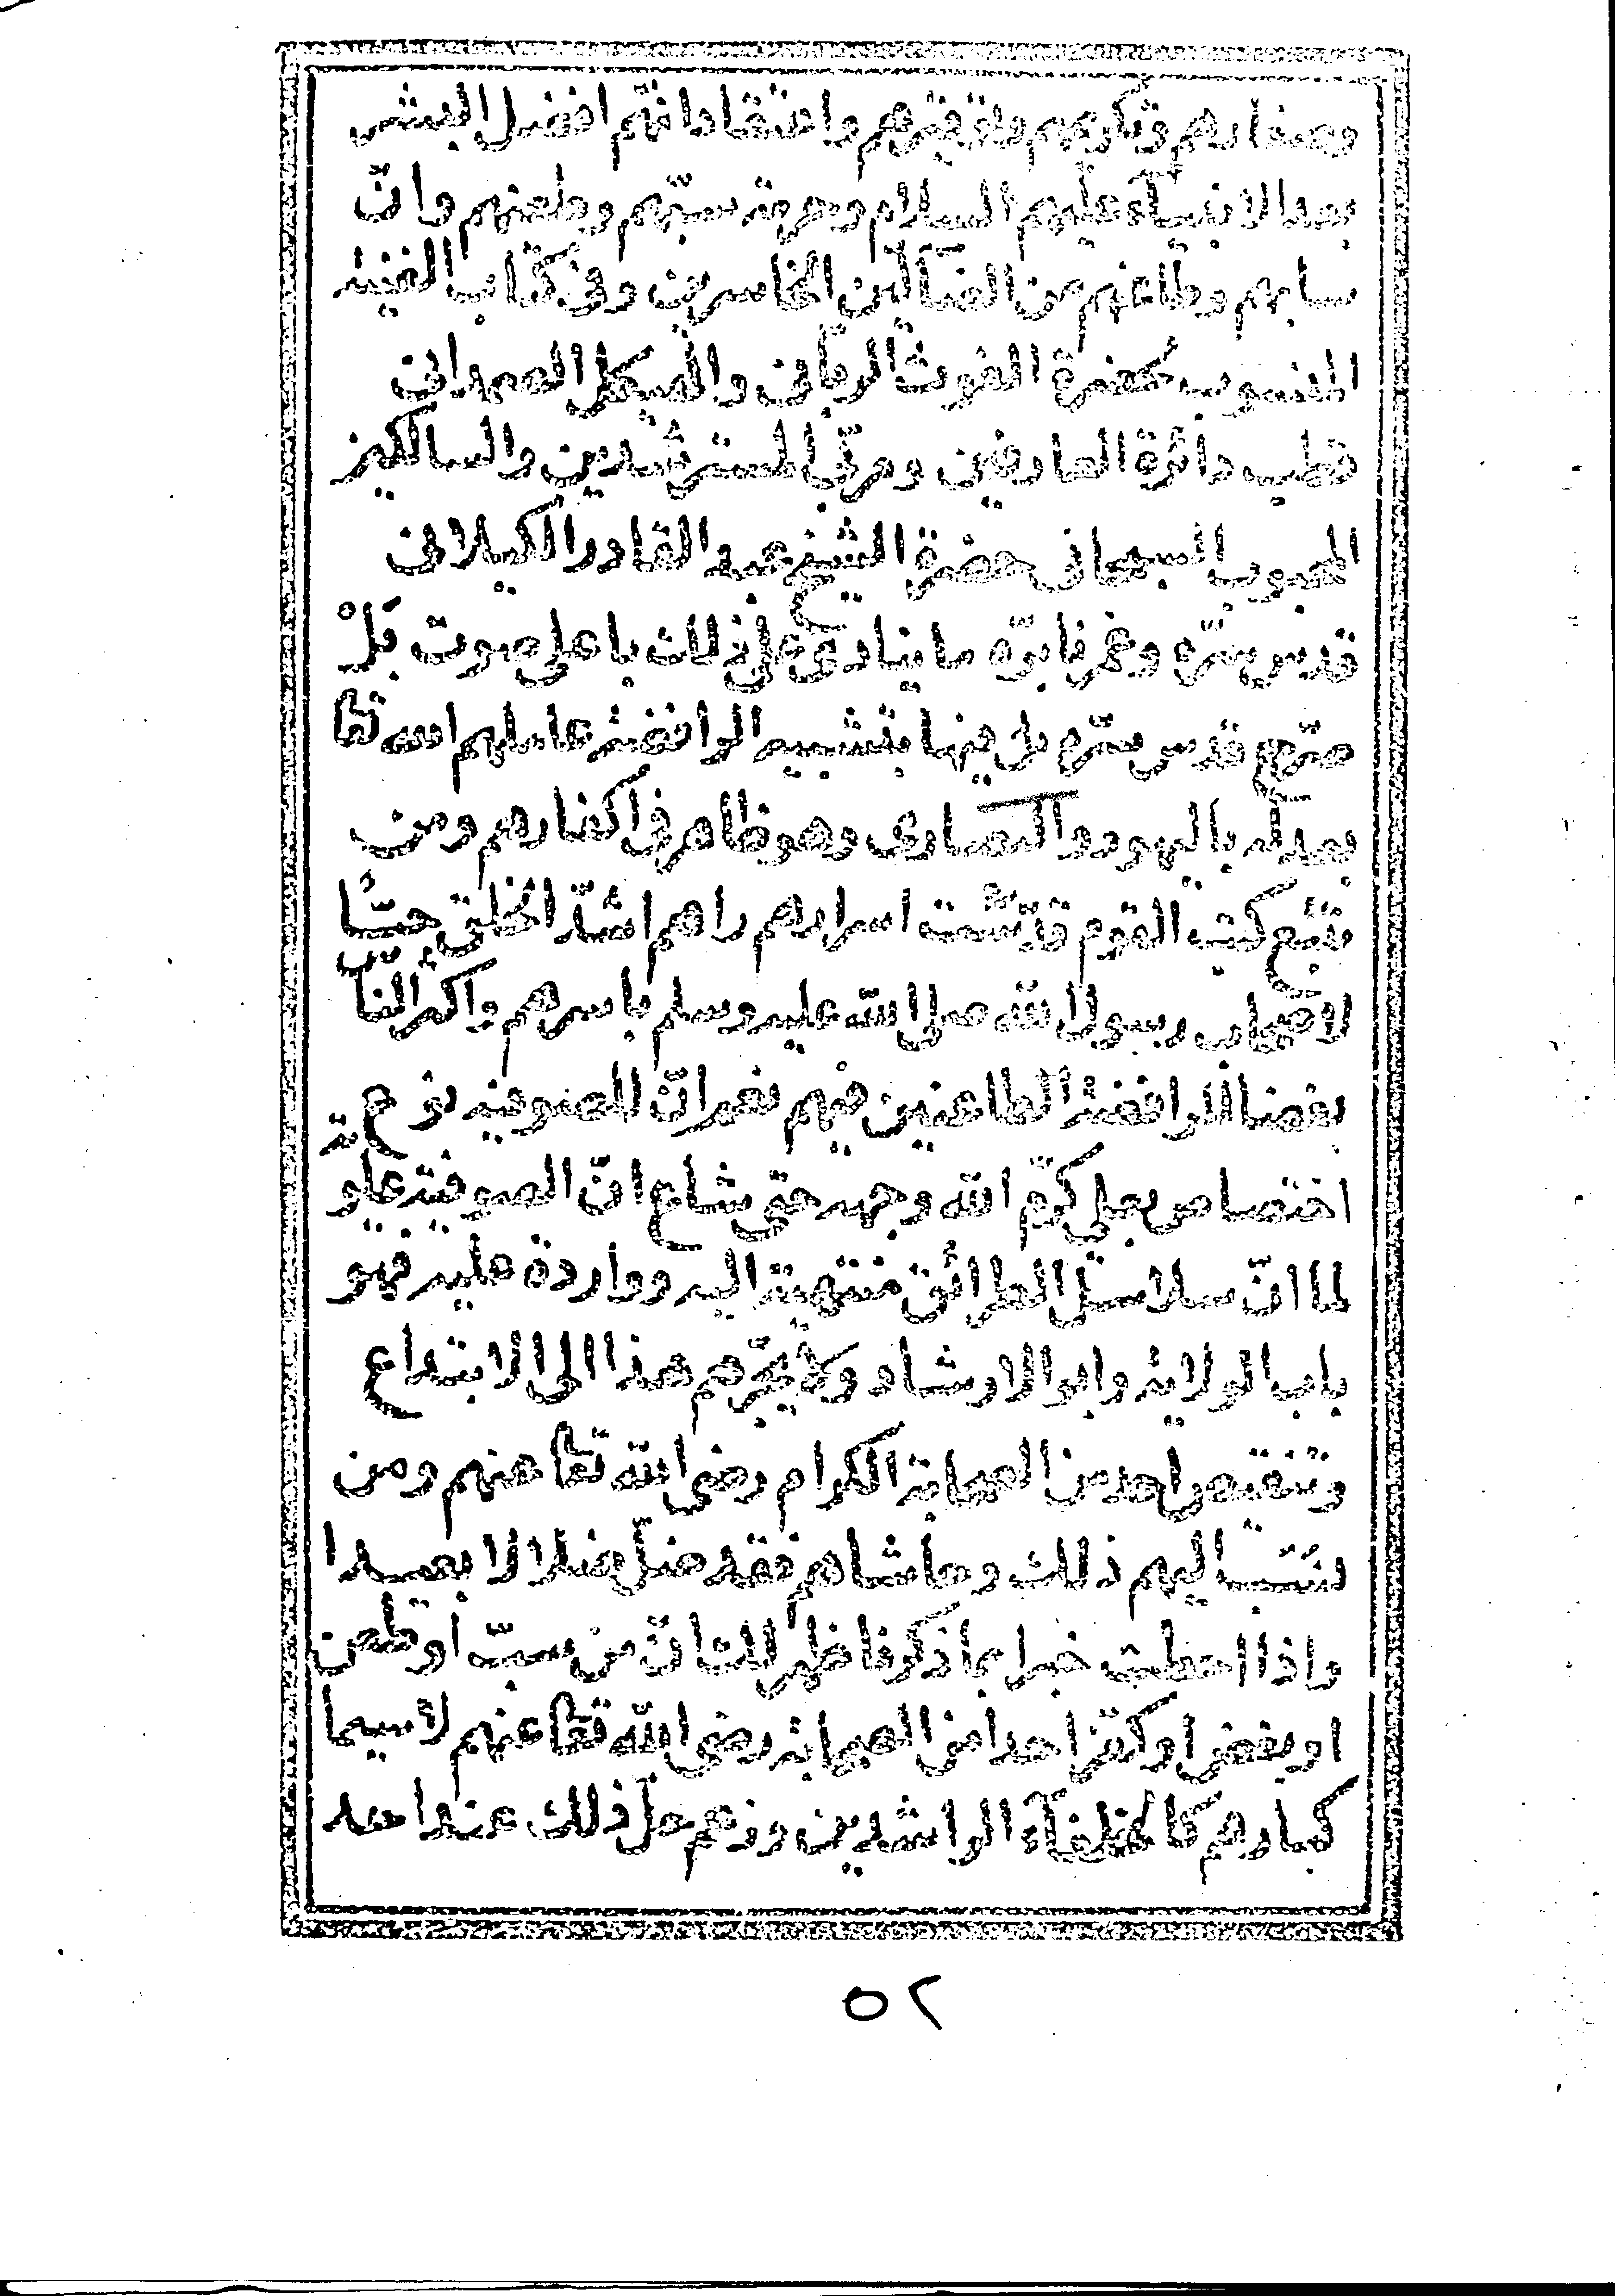 وصغارهم وتكريمهم وتوقيرهم واعتقاد انهم افضل البشر
بعد الانبياء عليهم السلام وحرمة سبهم وطعنهم وانّ
سابهم وطاعنهم من الضآلين الخاسرين وفى كتاب الغنية
المنسوب لحضرة الغوث الربانى والهيكل الصمدانى
قطب دائرة العارفين ومربّى المسترشدين والسالكين
المحبوب السبحانى حضرة الشيخ عبد القادر الكيلانى
قدس سره وغمرنا برّه ما ينادى على ذلك باعلى صوت بَلْ
صرّح قدس سرّه فيها بتشبيه الرافضة عاملهم الله تعا
بعدله باليهود والنصارى وهو ظاهر فى اكفارهم ومن
تتبّع كتب القوم قدّست اسرارهم راهم اشدّ الخلق حبّا
لاصحاب رسول الله صلى الله عليه وسلم باسرهم واكثر الناس
بغضا للرافضة الطاعنين فيهم نعم انّ للصوفية نوع
اختصاص بعلى كرّم الله وجهه حتى شاع انّ الصوفية علويّة
لما انّ سلاسل الطرائق منتهية اليه وواردة عليه فهو
باب الولاية وابو الارشاد ولا يجرّهم هذا الى الابتداع
وتنقيص احد من الصحابة الكرام رضى الله تعا عنهم ومن
نسب اليهم ذلك وحاشاهم فقد ضلّ ضلالا بعيدا
واذا احطت خبرا بما ذكرنا ظهر لك انّ من سبّ او طعن
او بغض او كفّر احدا من الصحابة رضى الله تعا عنهم لاسيما
كبارهم كالخلفآء الراشدين وزعم حلّ ذلك عند احد
٥٢